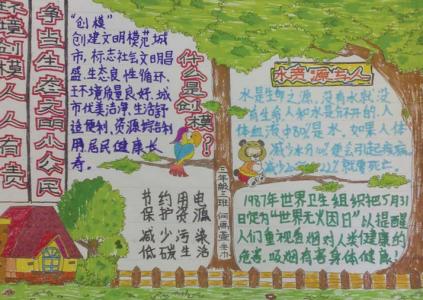 环境创模人人有责
争当生态文明小公民
“创模”
创建文明模范城
市,标志社会文明昌
盛、生态良性循环、
环境质量良好、城
市优美洁净、生活舒
适便利、资源综合利
用居民健康长
寿。
什么是创模?!
水资源与人
水是生命之源,没有水就没
有生命人和水是分不开的,人
体血液中80%是水,如果人体
减少水10%便会引起疾病,
减少20%-22%就要死亡.
节约用电
保护资源
减少污染
低碳生活
三年级二班
1987年世界卫生组织把5月31
日定为“世界无烟日”以提醒
人们重视吸烟对人类健康的
危害,吸烟有害身体健康!